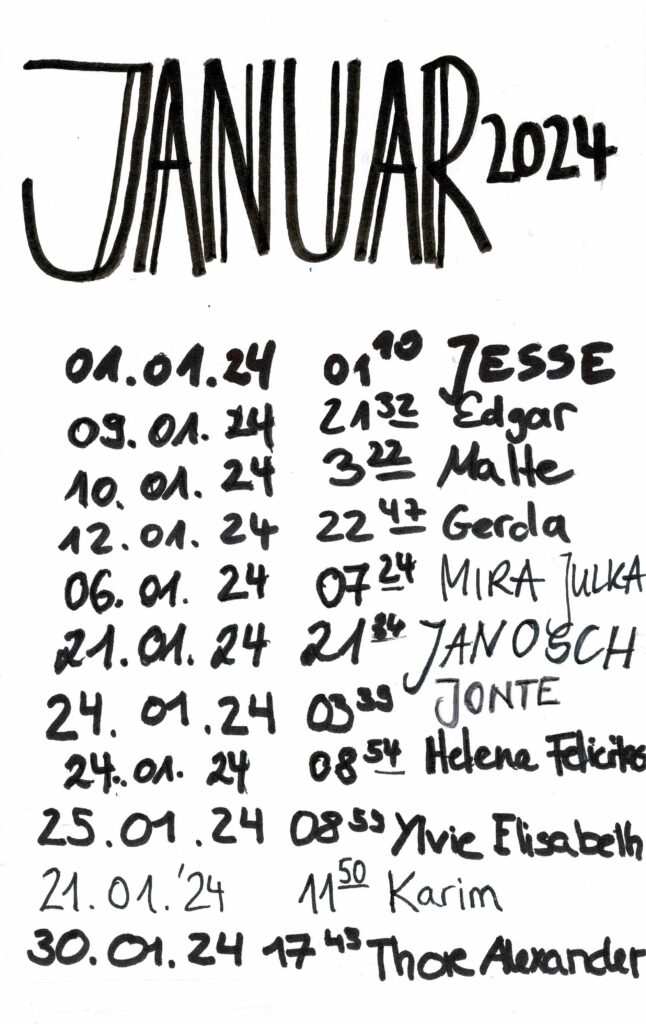 JANUAR 2024
01.01.24 01 10 JESSE
09.01.24 21 32 Edgar
10.01.24 3 22 Malte
12.01.24 22 47 Gerda
06.01.24 07 24 MIRA JULKA
21.01.24 21 34 JANOSCH
24.01.24 03 39 JONTE
24.01.24 08 54 Helena Felicitas
25.01.24 08 59 Ylvie Elisabeth
21.01.'24 11 50 Karim
30.01.24 17 43 Thore Alexander